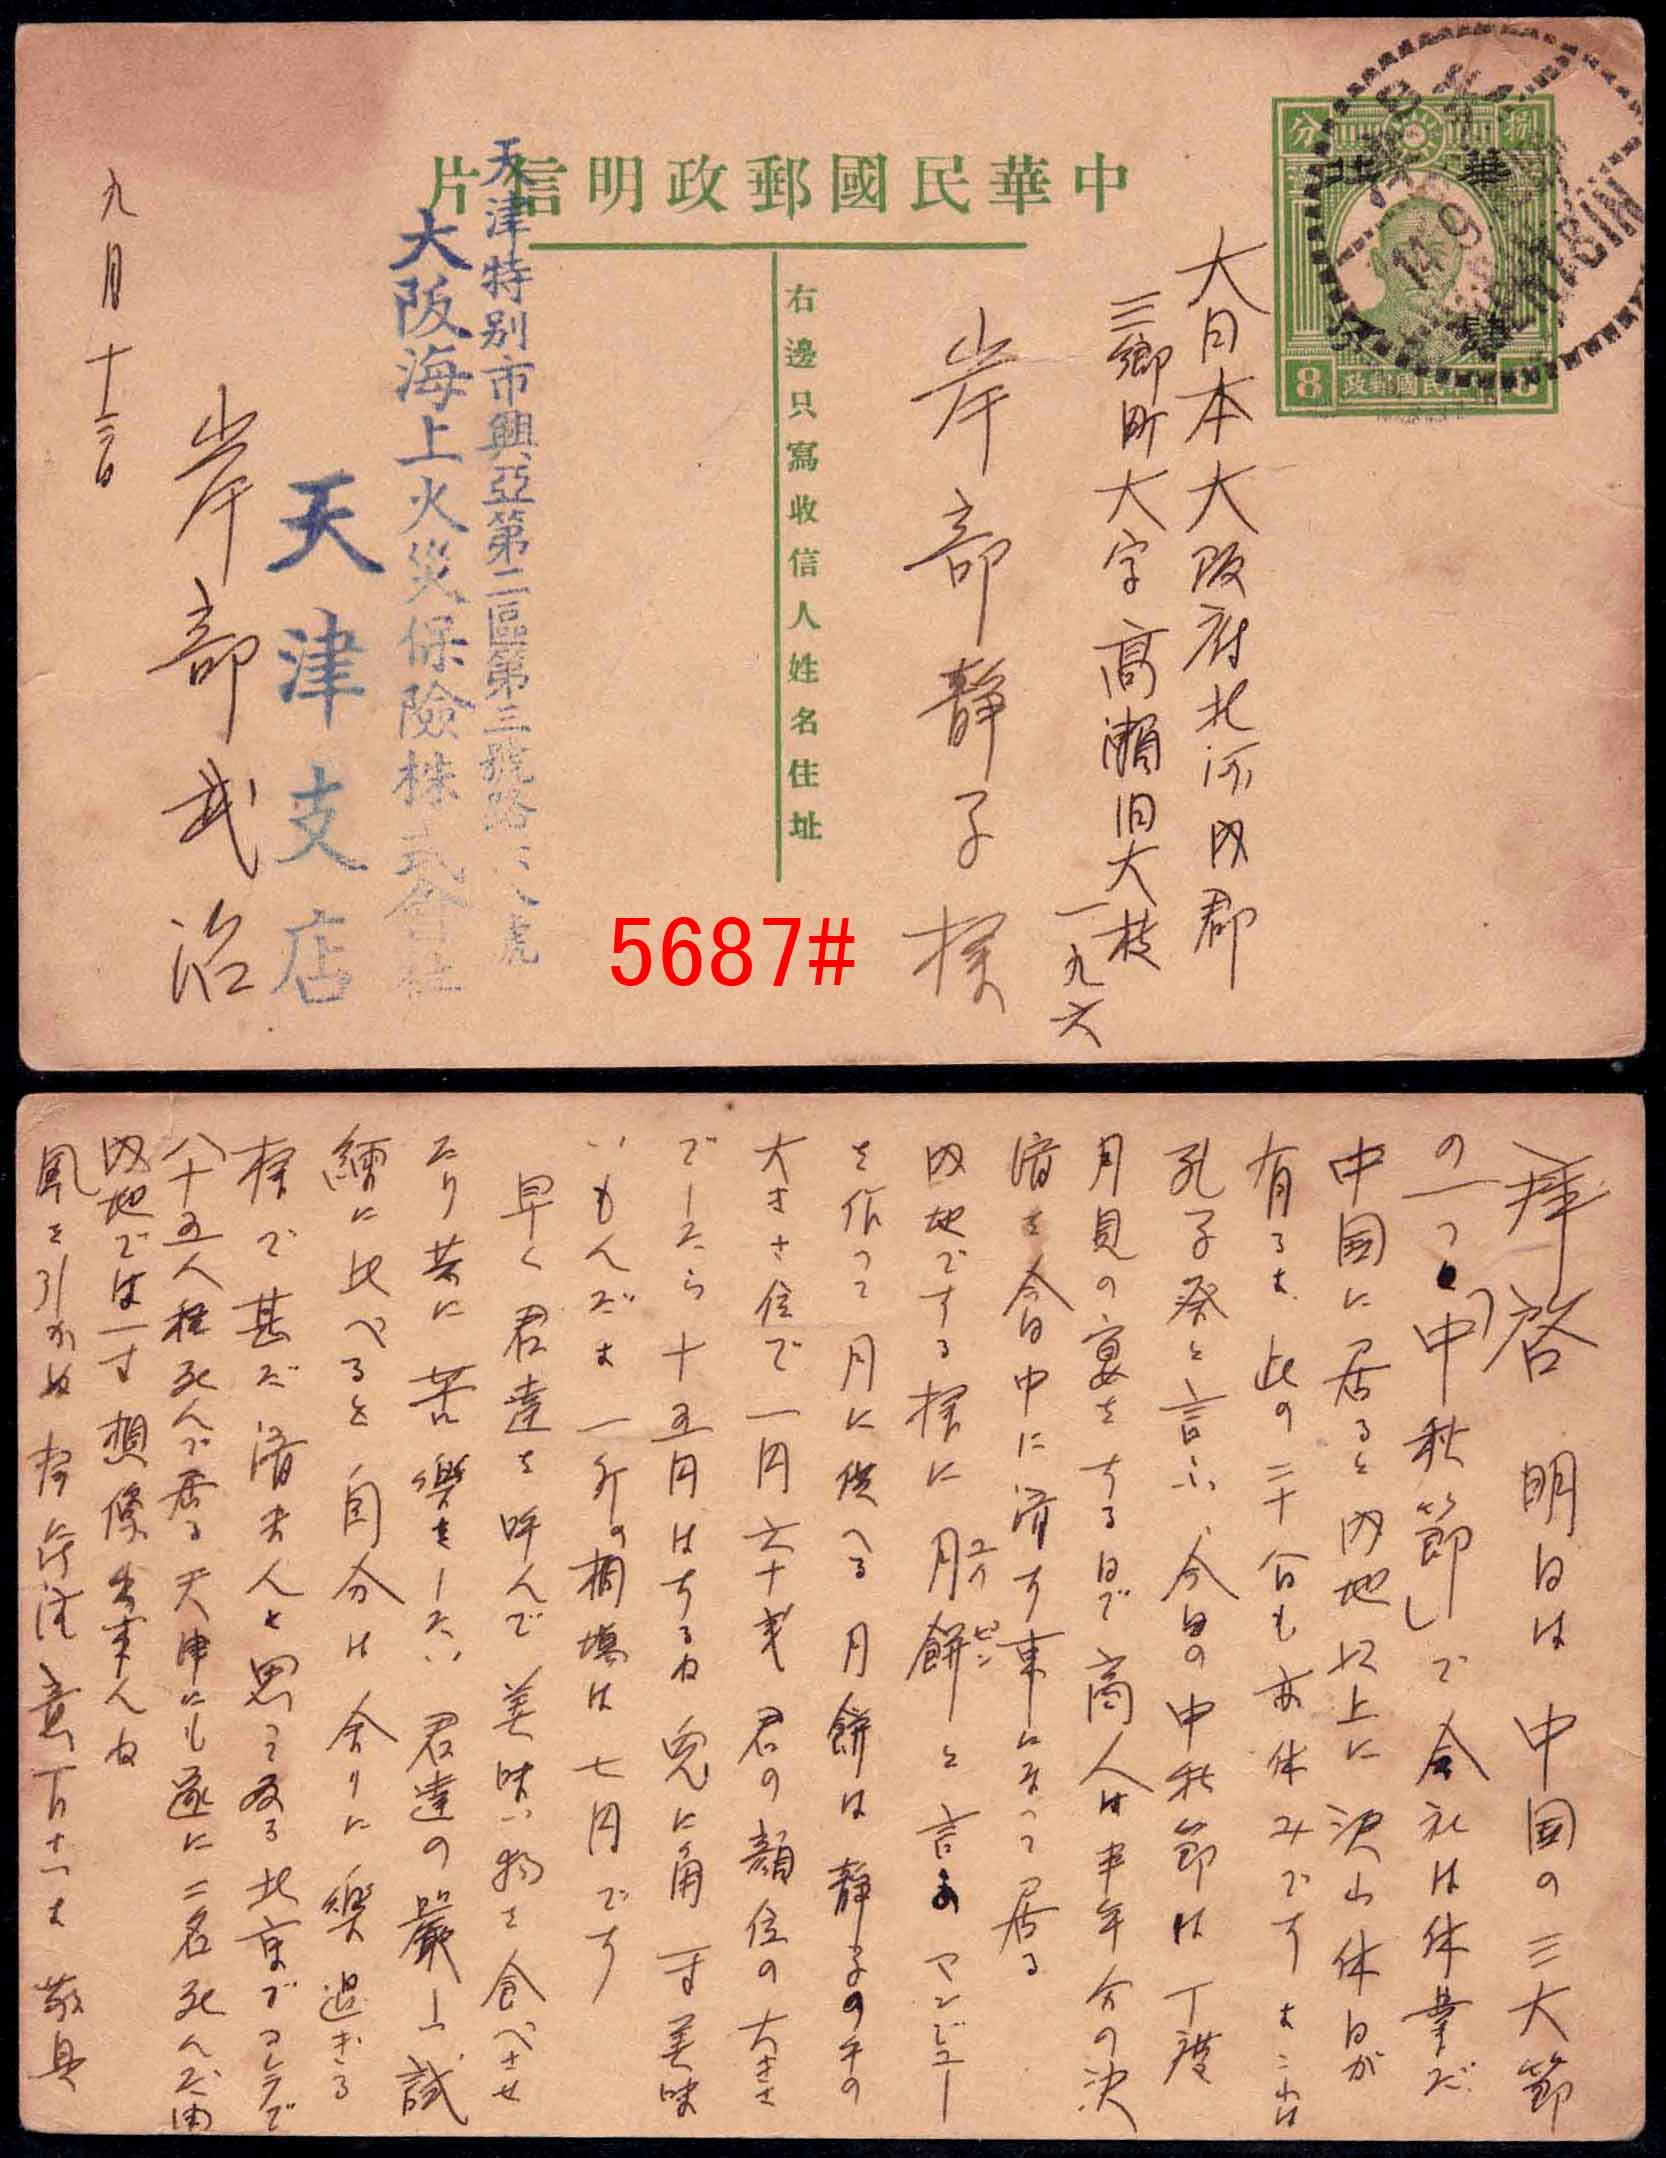 中華民國郵政明信片
捌
分
華
北
8
中華民國郵政
14
9
TIENTSIN
大日本大阪府北河内郡
三郷町大字高瀬旧大枝
一九六
岸部靜子様
右邊只寫收信人姓名住址
天津特别市興亞第二區第三號路
大阪海上火災保險株式會社
天津支店
岸部武治
九月十三日
5687#
拜啓 明日は中国の三大節
の一つ「中秋節」で会社は休業だ
中国に居ると内地以上に沢山休日が
有るよ 此の二十八日も亦休みです
孔子祭と言ふ、今日の中秋節は丁度
月見の宴をする日で商人は半年分の決
済を今日中に済す事になって居る
内地でする様に月餅と言ふマンジュー
ユイ ピン
を作って月に供へる 月餅は靜子の手の
大きさ位で一円六十戔 君の顔位の大きさ
でしたら十五円はするね 兎に角一寸美味
いもんだよ 一斤の楜塡は七円です
早く君達を呼んで美味い物を食べさせ
たり共に苦樂をしたい 君達の嚴しい試
練に比べると自分は余りに樂過ぎる
様で甚だ済まんと思って居る 北京でコレラで
八十五人程死んで居る 天津にも遂に二名死んだ由
内地では一寸想像出来んね
風を引かぬ様 御注意下さいよ 敬具